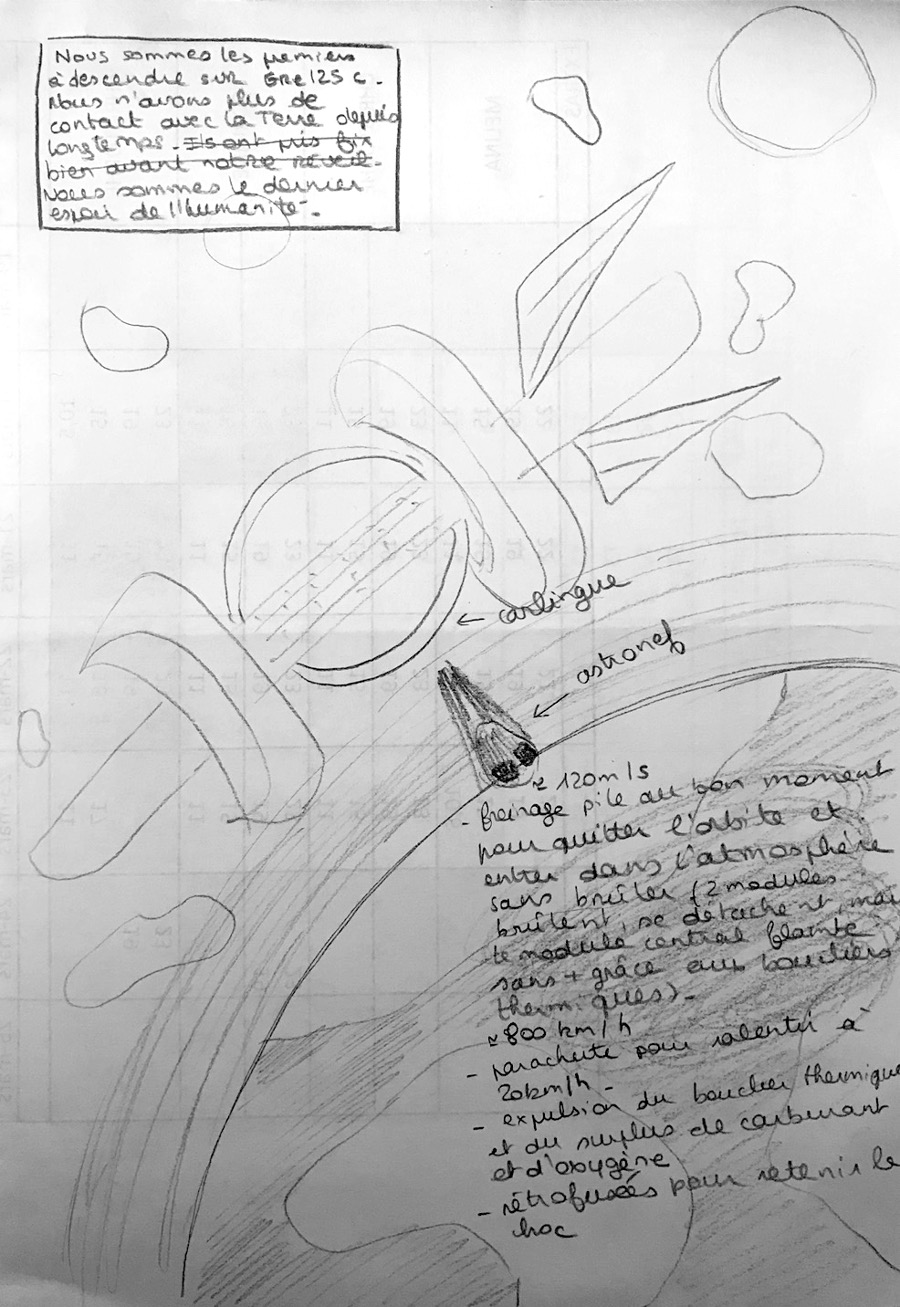 Nous sommes les premiers
à descendre sur GRE125 C.
Nous n'avons plus de
contact avec la Terre depuis
longtemps. Ils ont pris fin
bien avant notre réveil.
Nous sommes le dernier
espoir de l'humanité.
← carlingue
astronef
≈ 120m/s
- freinage pile au bon moment
pour quitter l'orbite et
entrer dans l'atmosphère
sans brûler (2 modules
brûlent, se détachent, mais
le module central flambe
sans + grâce aux boucliers
thermiques).
≈ 800 km/h
- parachute pour ralentir à
20km/h.
- expulsion du bouclier thermique
et du surplus de carburant
et d'oxygène
- rétrofusées pour retenir le
choc